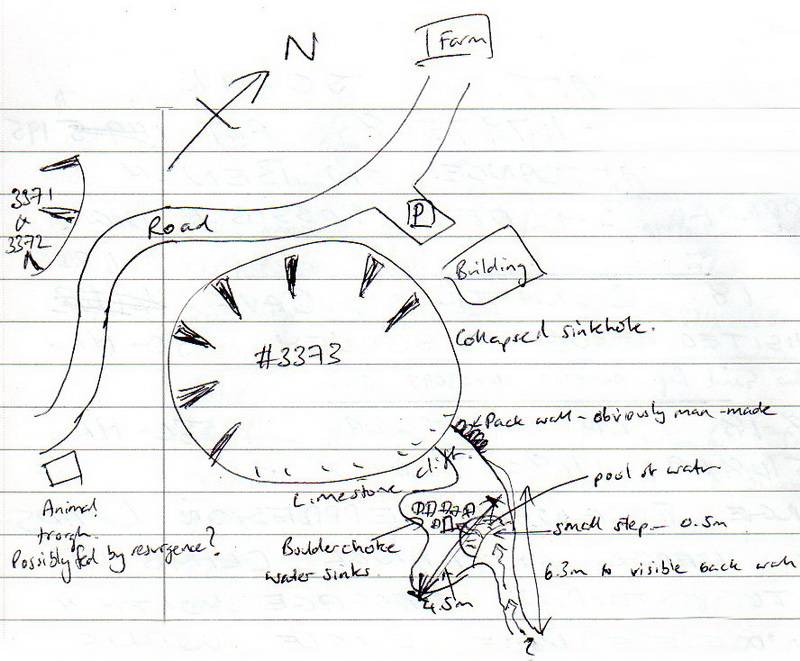 N
Farm
3371
&
3372
Road
P
Building
Collapsed sinkhole.
#3373
Pack wall - obviously man-made
Limestone cliff.
pool of water
Animal
trough.
Possibly fed by resurgence?
Boulder choke
water sinks.
small step - 0.5m
6.3m to visible back wall
4.5m
?